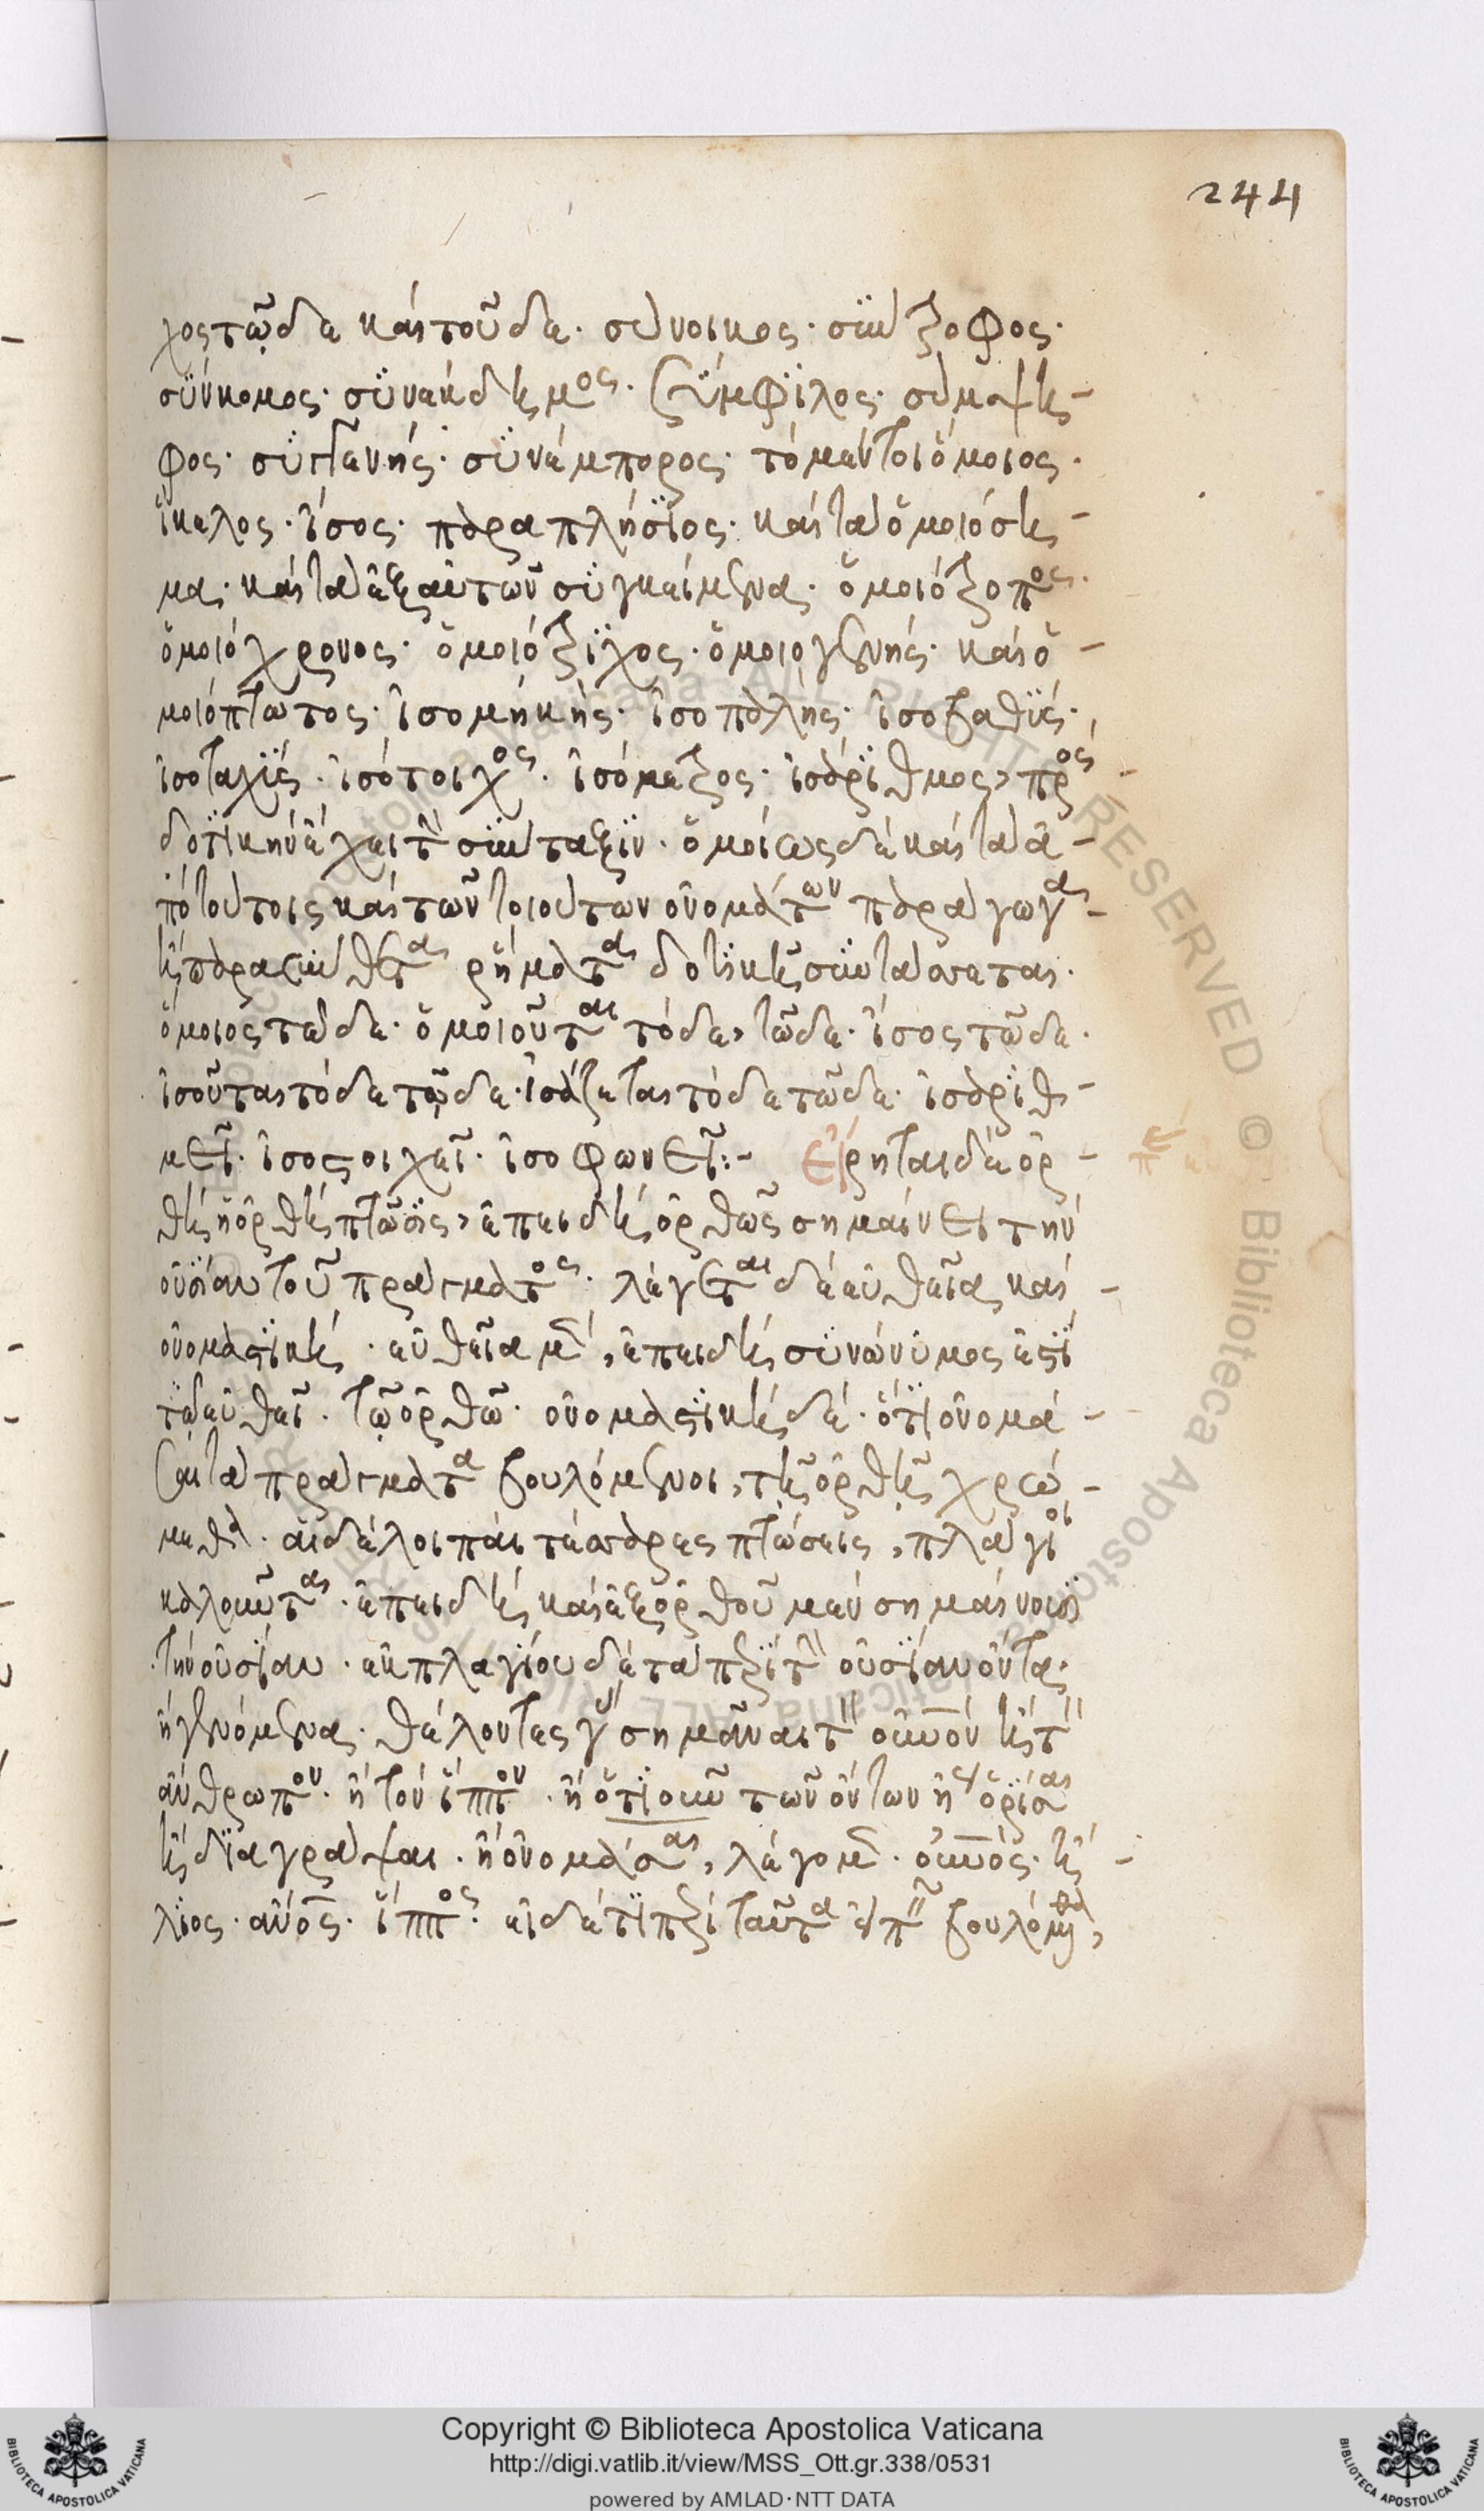 244
χος τῷδε καὶ τοῦδε· σύνοικος· σύντροφος·
σύννομος· συνέκδημος· σύμφιλος· σύμψη-
φος· συγγενής· συνέμπορος· τὸ μέντοι ὅμοιος·
εἴκελος· ἴσος· παραπλήσιος· καὶ τὰ ὁμοιόση-
μα· καὶ τὰ ἐξ αὐτῶν συγκείμενα· ὁμοιότροπος·
ὁμοιόχρονος· ὁμοιόστιχος· ὁμοιογενής· καὶ ὁ-
μοιόπτωτος· ἰσομήκης· ἰσοπαλής· ἰσοβαθής·
ἰσοταχής· ἰσότοιχος· ἰσόμετρος· ἰσάριθμος, πρὸς
δοτικὴν ἔχει τὴν σύνταξιν· ὁμοίως δὲ καὶ τὰ ἀ-
πὸ τούτοις καὶ τῶν τοιούτων ὀνομάτων παραγωγα
ἢ παρασυνθετα ῥήματα δοτικῇ συντάσσεται·
ὅμοιος τῷδε· ὁμοιοῦται τόδε, τῷδε· ἴσος τῷδε·
ἰσοῦται τόδε τῷδε· ἰσάζεται τόδε τῷδε· ἰσαριθ-
μεῖ· ἰσοστοιχεῖ· ἰσοφωνεῖ:- Εἴρηται δὲ ὀρ-
θὴ ἡ ὀρθὴ πτῶσις, ἐπειδὴ ὀρθῶς σημαίνει τὴν
οὐσίαν τοῦ πράγματος· λέγεται δὲ εὐθεῖα καὶ
ὀνομαστική· εὐθεῖα μὲν, ἐπειδὴ συνώνυμος ἐστὶ
τῷ εὐθεῖ· τῷ ὀρθῷ· ὀνομαστικὴ δέ· ὅτι ὀνομά-
σαι τὰ πράγματα βουλόμενοι, τῇ ὀρθῇ χρώ-
μεθα· αἱ δὲ λοιπαὶ τέσσαρες πτώσεις, πλάγιοι
καλοῦνται· ἐπειδὴ καὶ ἐξ ὀρθοῦ μὲν σημαίνουσι
τὴν οὐσίαν· ἐκ πλαγίου δὲ τὰ περὶ τὴν οὐσίαν ὄντα·
ἢ γενόμενα· θέλοντες γὰρ σημᾶναι τὸν οὐνον ἢ τὸν
ἄνθρωπον· ἢ τὸν ἵππον· ἢ ὁτιοῦν τῶν ὄντων ἢ ὁρίσαι
ἢ διαγράψαι· ἢ ὀνομάσαι, λέγομεν· οὐνος· ἥ-
λιος· ἄνος· ἵππος· εἰ δέ τι περὶ ταῦτα εἰπεῖν βουλόμεθα,
Copyright © Biblioteca Apostolica Vaticana
http://digi.vatlib.it/view/MSS_Ott.gr.338/0531
powered by AMLAD·NTT DATA